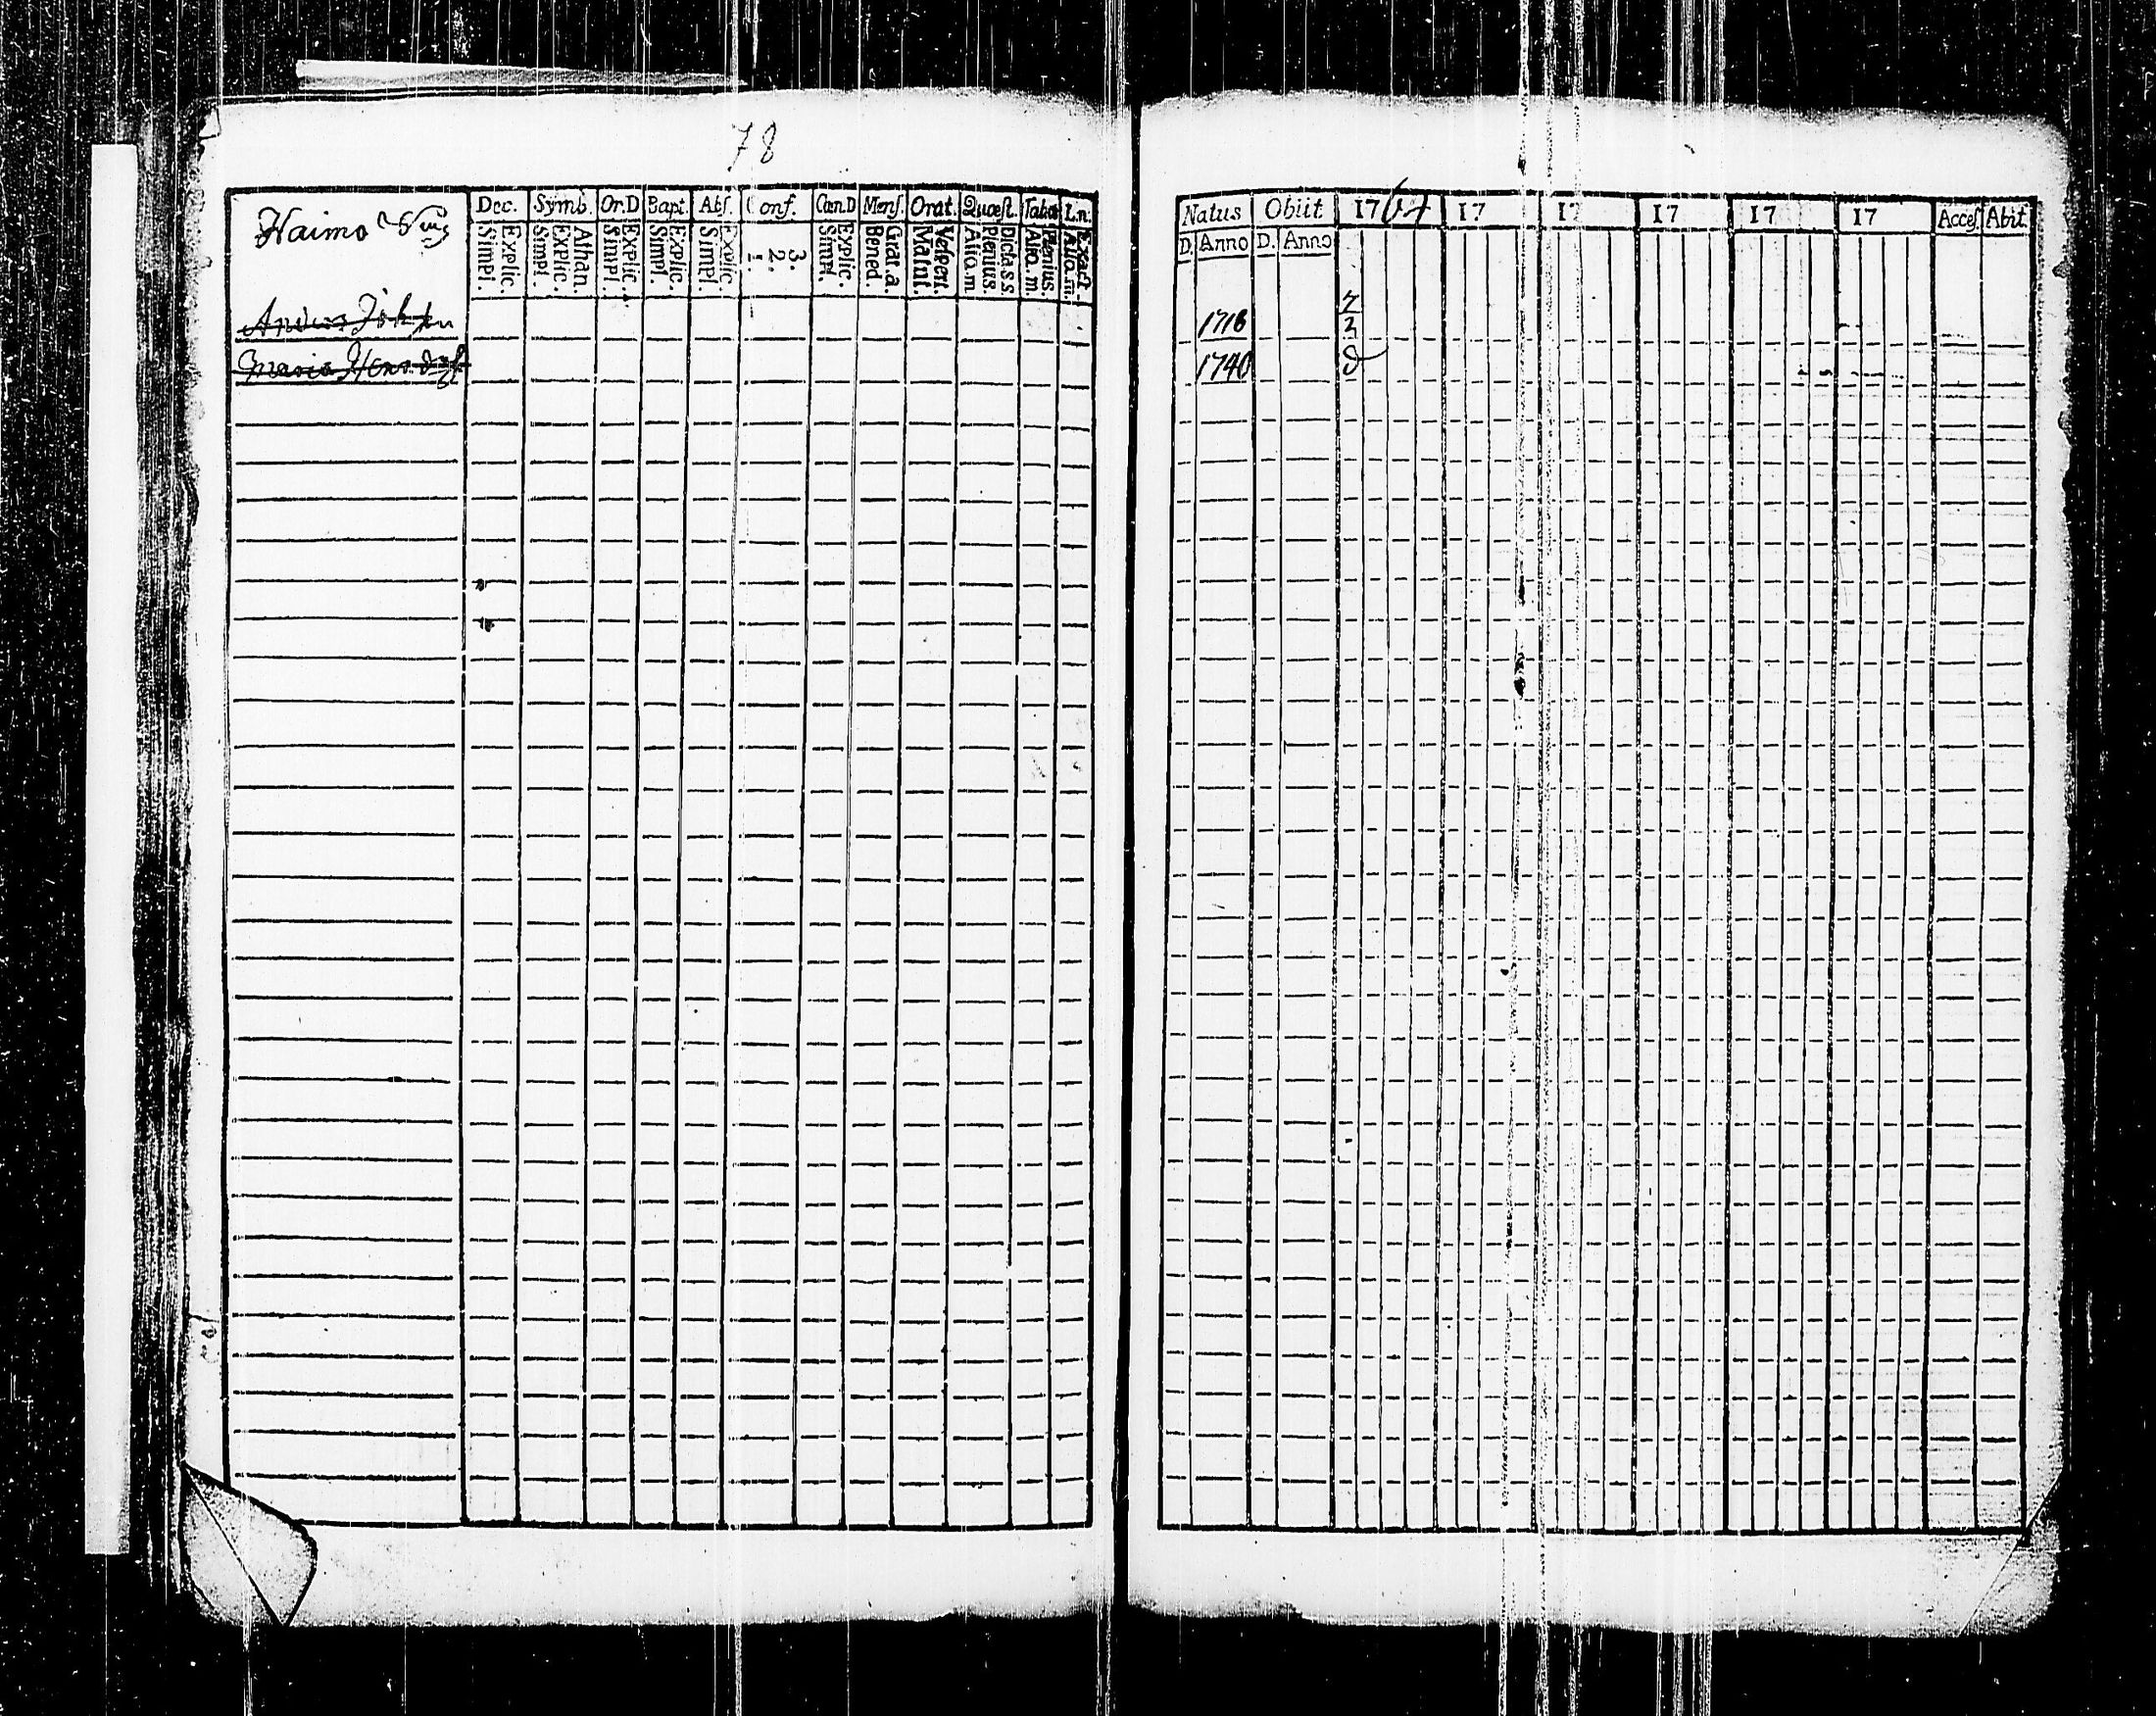 78
Haimo
Dec. Symb. Or.D Bapt. Abs. Conf. Cœn.D Mens. Orat. Quæst. Tabœ I.n.
Simpl. Explic. Simpl. Explic. Athan. Simpl. Explic. Simpl. Explic. Simpl. Explic. 1. 2. 3. Simpl. Explic. Bened. Grat. a. Matut. Vespert. Alio. m Plenius. Dicta. s.s. Alio. m. Plenius. Alio. m. Exact.
Anders Joh
Maria Hen
Natus Obiit 1764 17 17 17 17 17 Acces. Abit.
D. Anno D. Anno
1718
1740